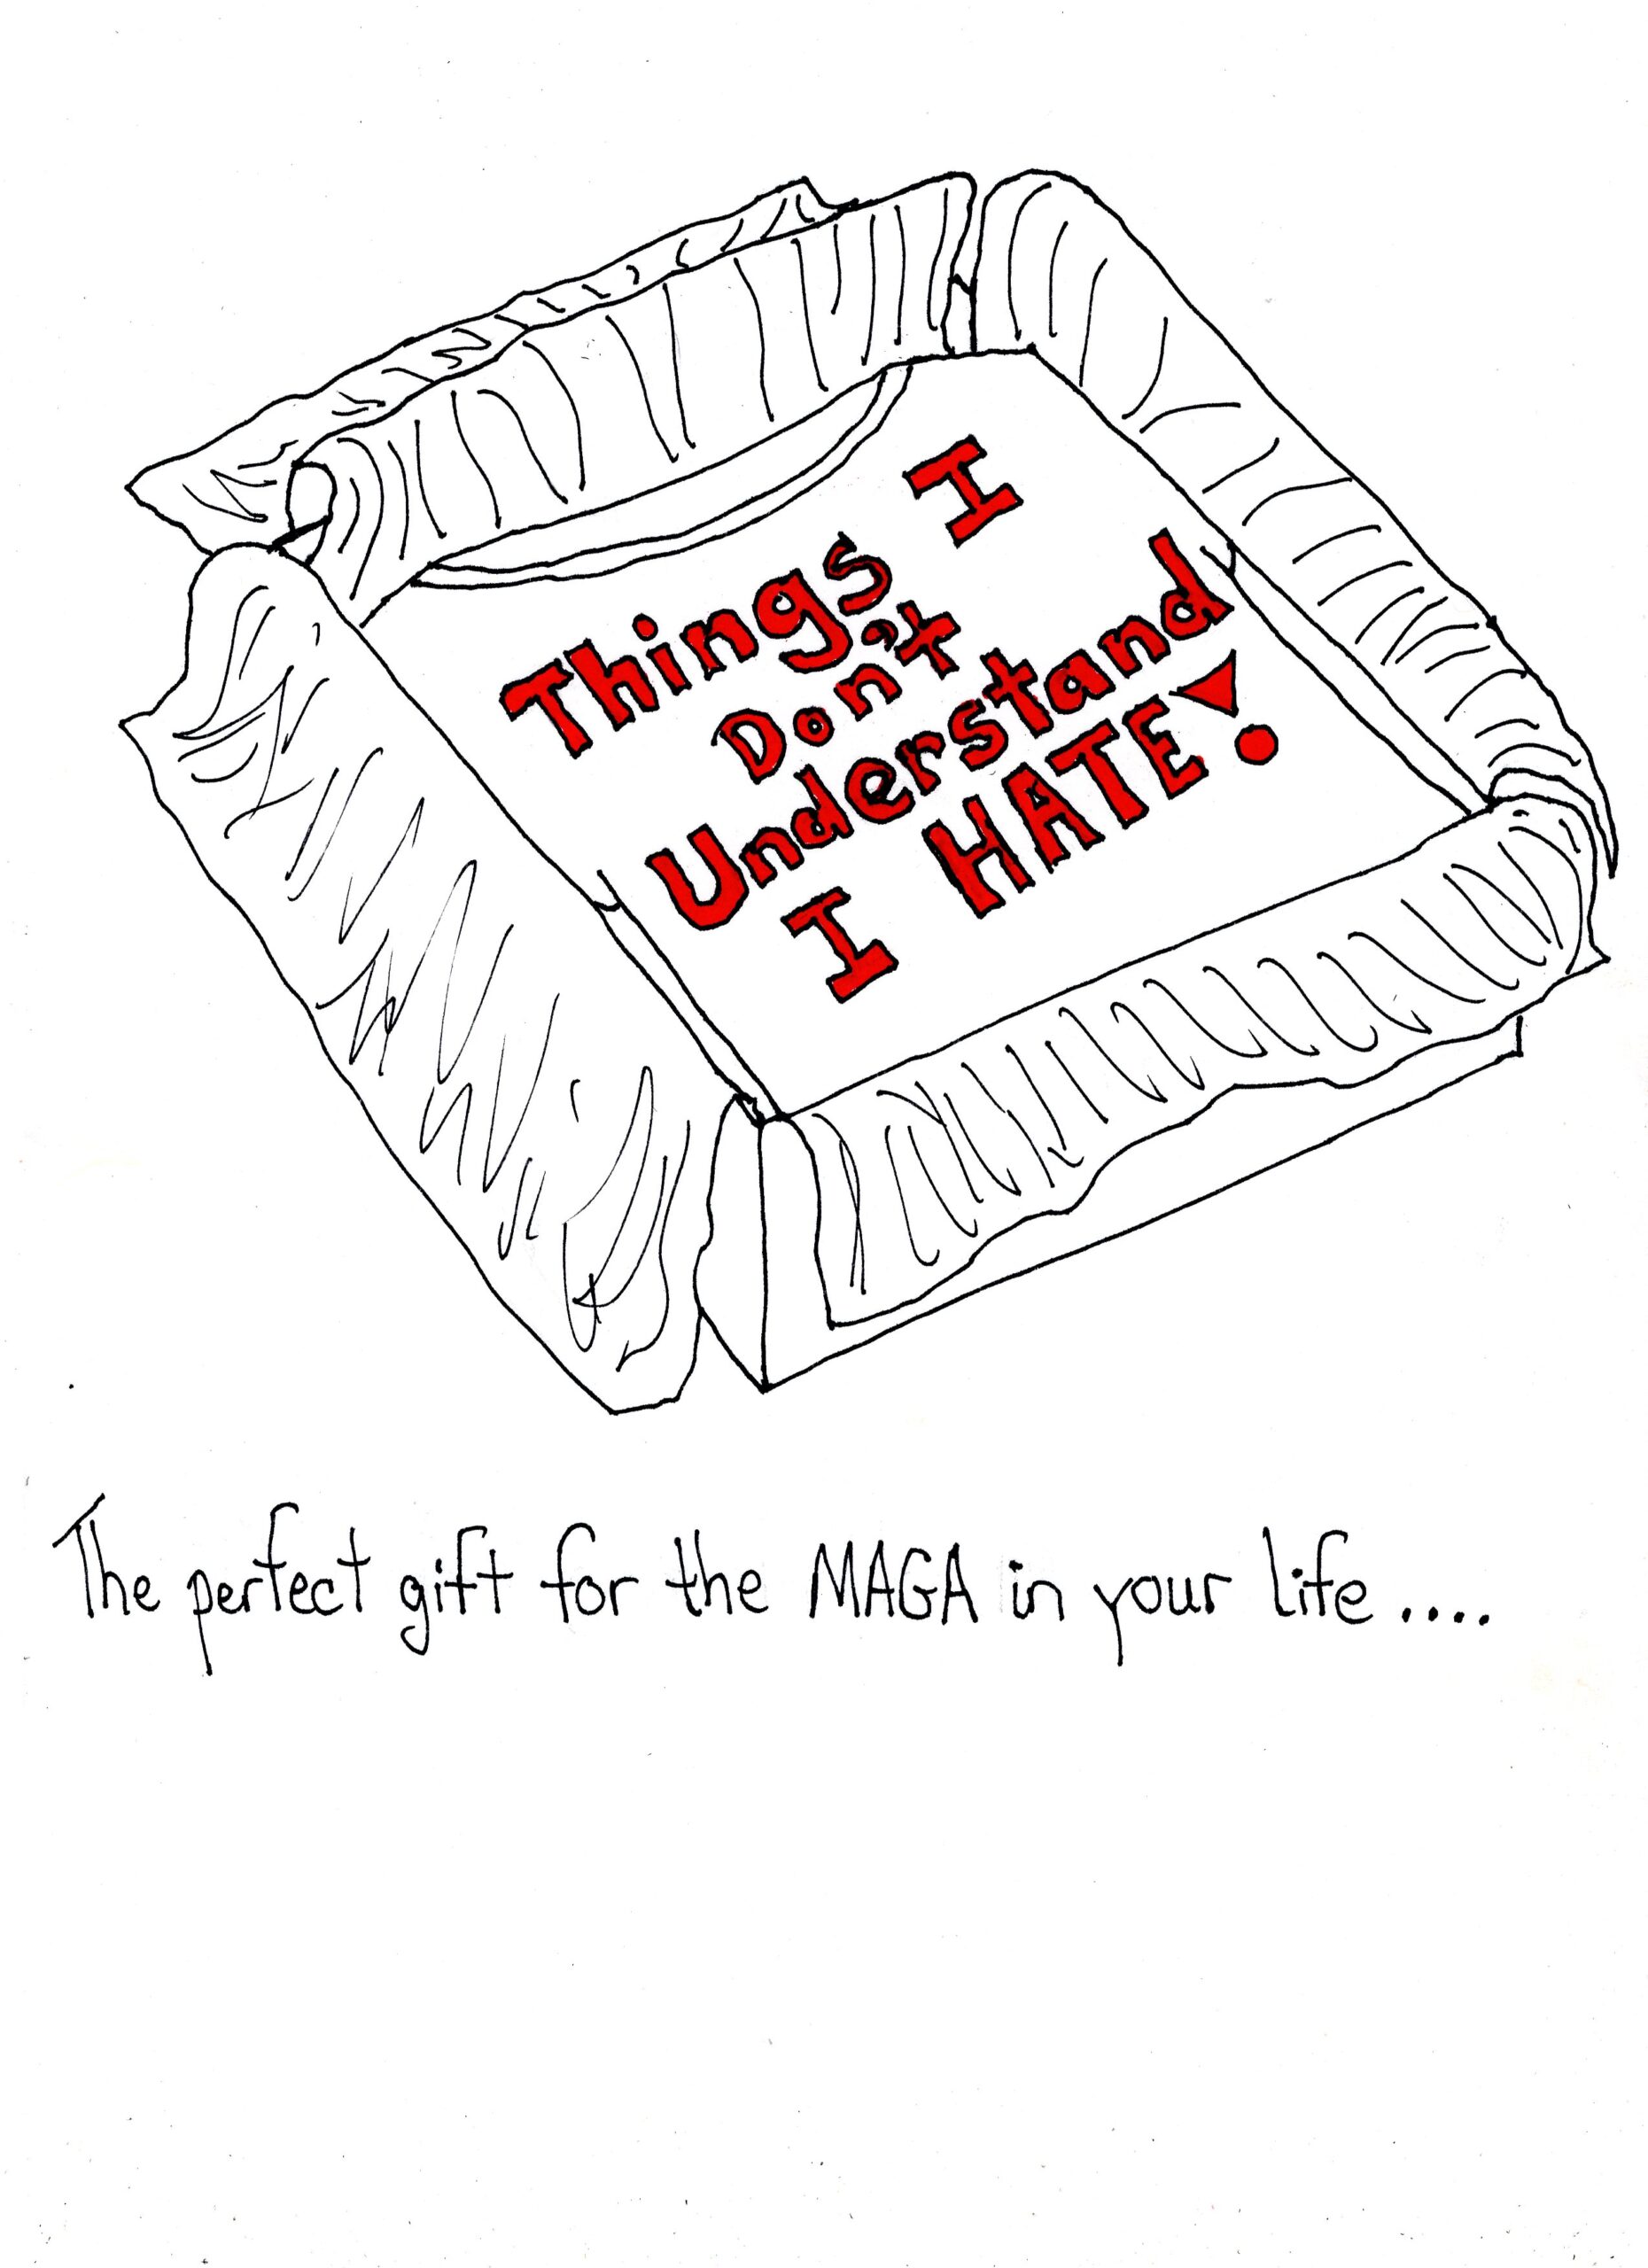 Things I
Don't
Understand
I HATE!
The perfect gift for the MAGA in your life....